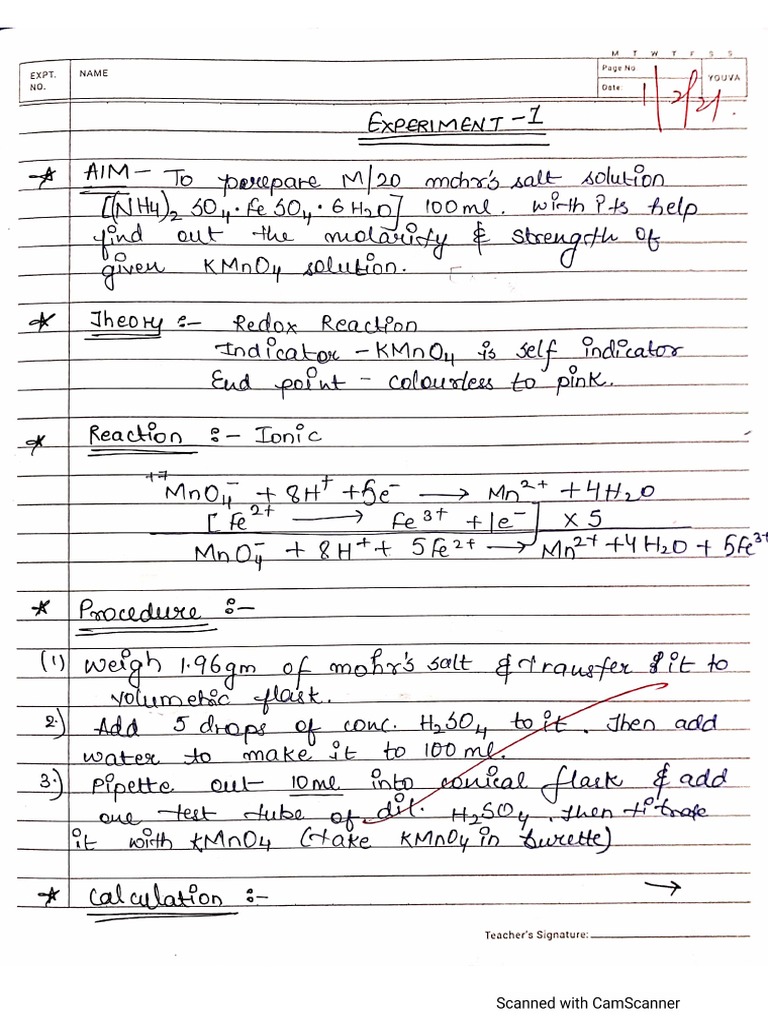 M T W T F S S
EXPT. NO. NAME Page No. YOUVA
Date: 1/2/21.
EXPERIMENT-1
* AIM - To prepare M/20 mohr's salt solution
[(NH4)2 SO4·FeSO4·6H2O] 100ml. with its help
find out the molarity & strength of
given KMnO4 solution.
* Theory :- Redox Reaction
Indicator - KMnO4 is self indicator
End point - colourless to pink.
* Reaction :- Ionic
+7
MnO4⁻ + 8H⁺ + 5e⁻ → Mn²⁺ + 4H2O
[Fe²⁺ → Fe³⁺ + 1e⁻] x 5
MnO4⁻ + 8H⁺ + 5Fe²⁺ → Mn²⁺ + 4H2O + 5Fe³⁺
* Procedure :-
(1) Weigh 1.96gm of mohr's salt & transfer it to
volumetric flask.
2.) Add 5 drops of conc. H2SO4 to it. Then add
water to make it to 100 ml.
3.) Pipette out 10ml into conical flask & add
one test tube of dil. H2SO4. Then titrate
it with KMnO4 (take KMnO4 in burette)
* Calculation :- →
Teacher's Signature:
Scanned with CamScanner